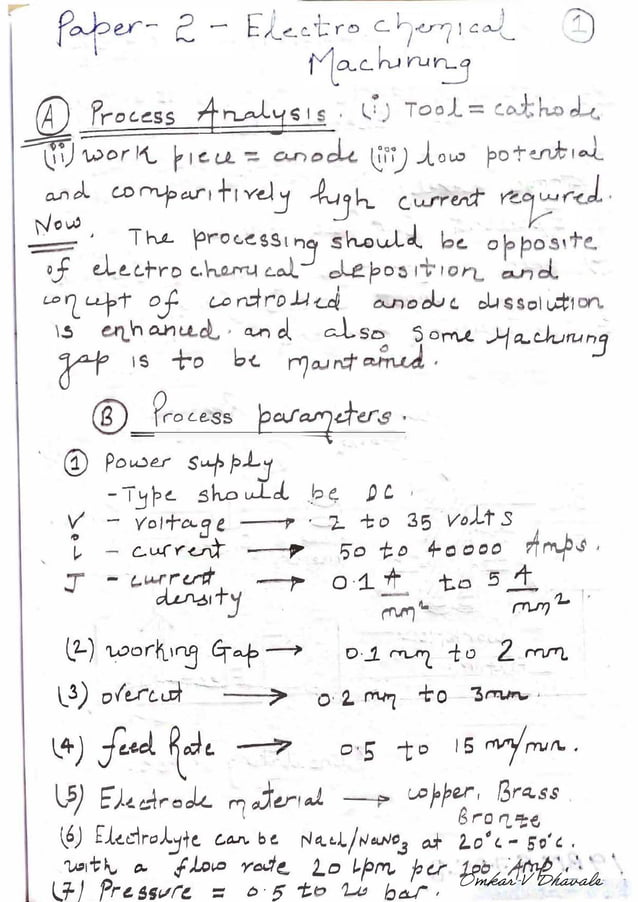 Paper - 2 - Electro chemical ①
Machining
Ⓐ Process Analysis. (i) Tool = cathode
(ii) work piece = anode (iii) low potential
and comparitively high current required.
Now. The processing should be opposite
of electrochemical deposition and
concept of controlled anodic dissolution
is enhanced. and also some Machining
gap is to be maintained.
Ⓑ Process parameters.
① Power supply
- Type should be DC.
V - voltage → 2 to 35 volts
i - current → 50 to 40000 Amps.
J - current density → 0.1 A/mm² to 5 A/mm²
(2) working Gap → 0.1 mm to 2 mm
(3) overcut → 0.2 mm to 3mm.
(4) feed Rate → 0.5 to 15 mm/min.
(5) Electrode material → copper, Brass
Bronze
(6) Electrolyte can be Nacl/NaNO₃ at 20°c - 50°c.
with a flow rate 20 Lpm per 100 Amp.
(7) Pressure = 0.5 to 20 bar.
Omkar V Dhavale